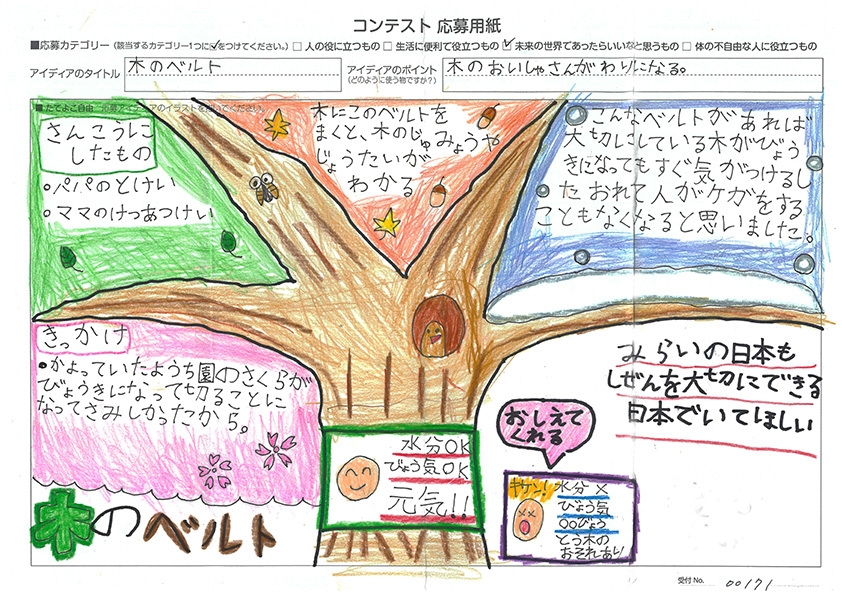 コンテスト 応募用紙
■応募カテゴリー（該当するカテゴリー1つに☑をつけてください。）□ 人の役に立つもの □ 生活に便利で役立つもの ☑ 未来の世界であったらいいなと思うもの □ 体の不自由な人に役立つもの
アイディアのタイトル
木のベルト
アイディアのポイント
（どのように使う物ですか？）
木のおいしゃさんがわりになる。
さんこうに
したもの
○パパのとけい
○ママのけつあつけい
木にこのベルトを
まくと、木のじゅみょうや
じょうたいが
わかる
こんなベルトがあれば
大切にしている木がびょう
きになってもすぐ気がつけるし
た おれて人がケガをする
こともなくなると思いました。
きっかけ
・かよっていたようち園のさくらが
びょうきになって切ることに
なってさみしかったから。
みらいの日本も
しぜんを大切にできる
日本でいてほしい
おしえて
くれる
水分OK
びょう気OK
元気!!
キケン!
水分×
びょう気
○○びょう
とう木の
おそれあり
木のベルト
受付No. 00171